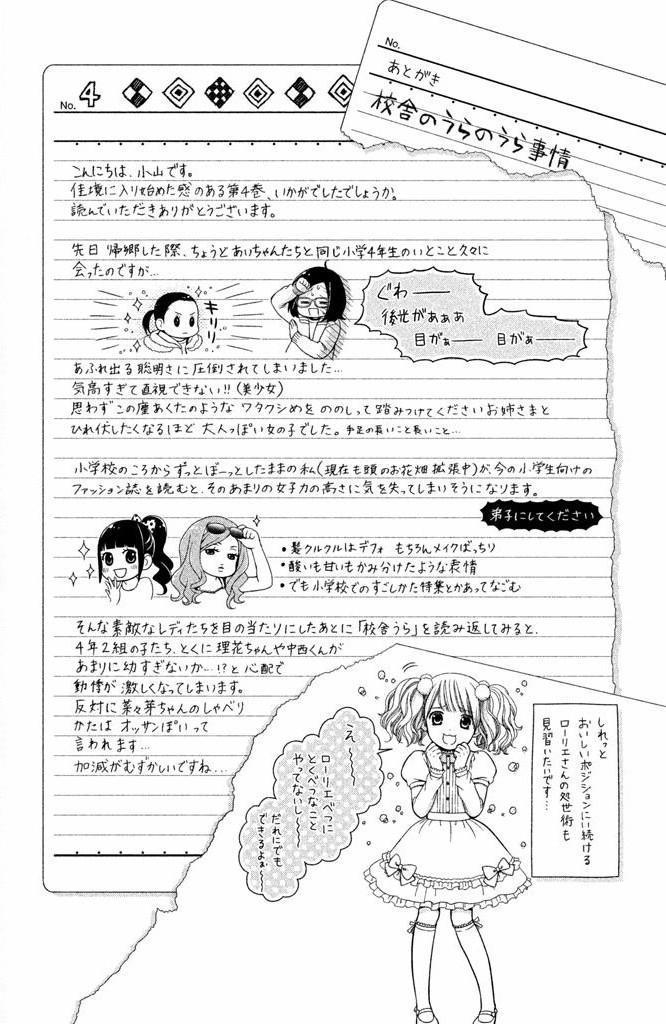 No.
あとがき
校舎のうらのうら事情
No. 4
こんにちは、小山です。
佳境に入り始めた感のある第4巻、いかがでしたでしょうか。
読んでいただきありがとうございます。
先日 帰郷した際、ちょうどあいちゃんたちと同じ小学4年生のいとこと久々に
会ったのですが…
キリリ
ぐわーーー
後光がぁぁぁ
目がぁーー 目がぁーー
あふれ出る聡明さに圧倒されてしまいました…
気高すぎて直視できない!!(美少女)
思わずこの塵あくたのようなワタクシめをののしって踏みつけてくださいお姉さまと
ひれ伏したくなるほど大人っぽい女の子でした。手足の長いこと長いこと…
小学校のころからずっとぼーっとしたままの私(現在も頭のお花畑拡張中)が、今の小学生向けの
ファッション誌を読むと、そのあまりの女子力の高さに気を失ってしまいそうになります。
弟子にしてください
・髪クルクルはデフォ もちろんメイクばっちり
・酸いも甘いもかみ分けたような表情
・でも小学校でのすごしかた特集とかあってなごむ
そんな素敵なレディたちを目の当たりにしたあとに「校舎うら」を読み返してみると、
4年2組の子たち、とくに理花ちゃんや中西くんが
あまりに幼すぎないか…!?と心配で
動悸が激しくなってしまいます。
反対に菜々芽ちゃんのしゃべり
かたは オッサンぽいって
言われます…
加減がむずかしいですね…
しれっと
おいしいポジションにい続ける
ローリエさんの処世術も
見習いたいです…
え〜〜〜
ローリエべつに
とくべつなこと
やってないし〜〜
だれにでも
できるよぉ〜〜